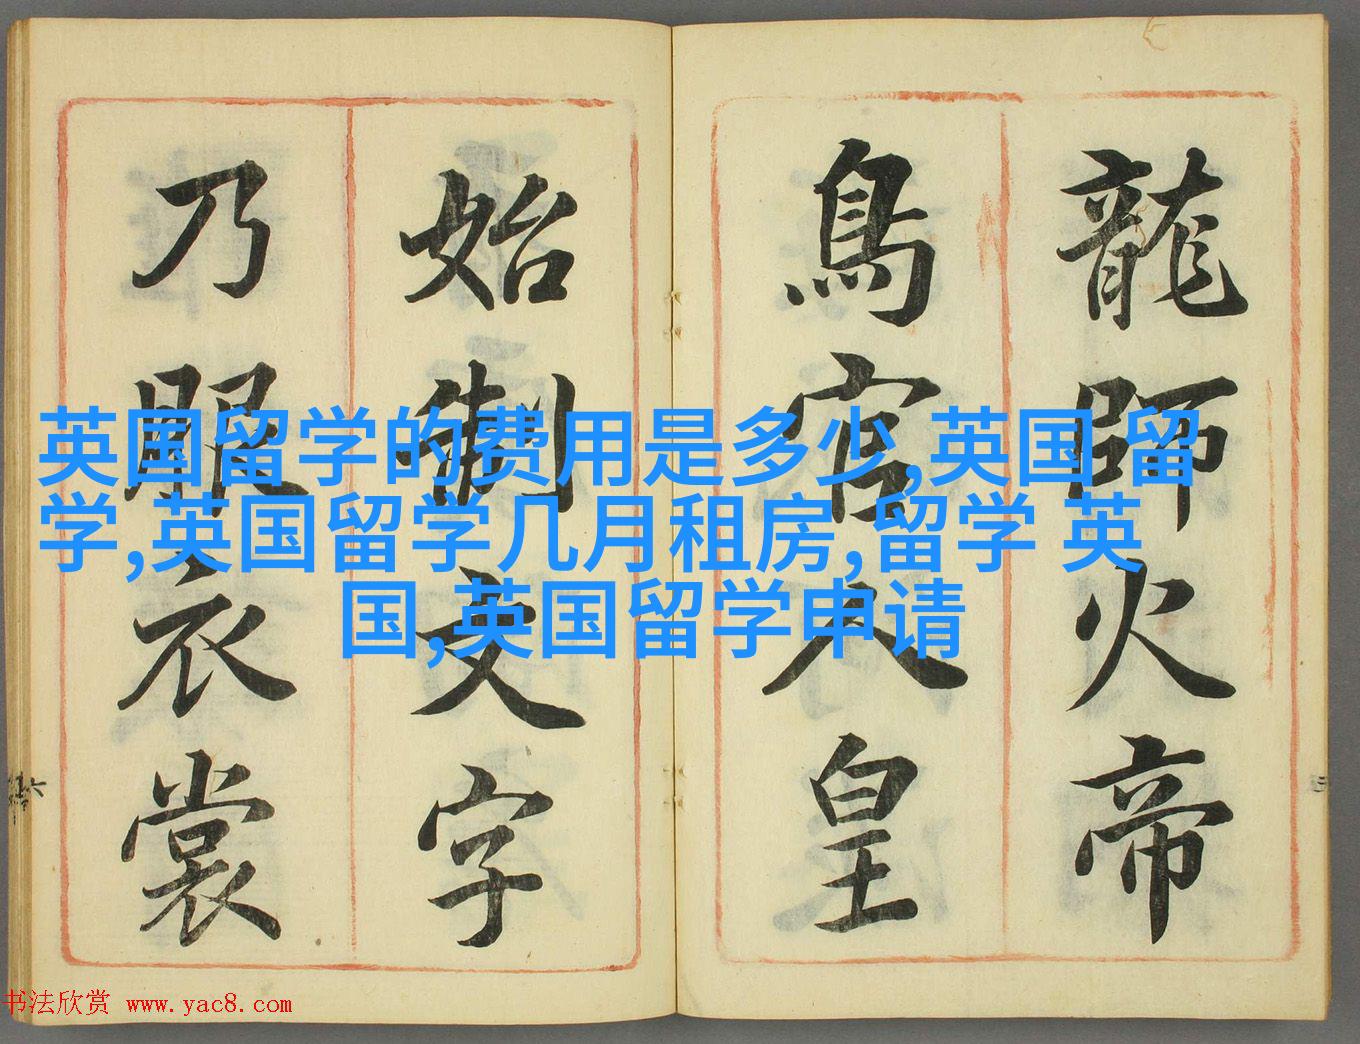 龍師火帝
鳥官人皇
始制文字
乃服衣裳
英国留学的费用是多少,英国 留
学,英国留学几月租房,留学 英
国,英国留学申请
书法欣赏 www.yac8.com